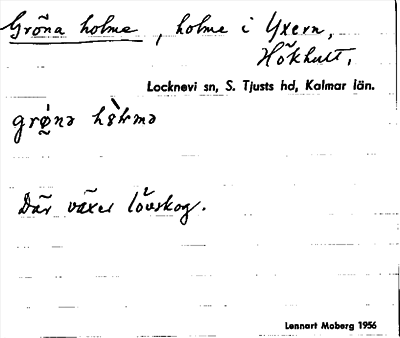 Gröna holme, holme i Yxern,
Hökhult,
Locknevi sn, S. Tjusts hd, Kalmar län.
Där växer lövskog.
Lennart Moberg 1956